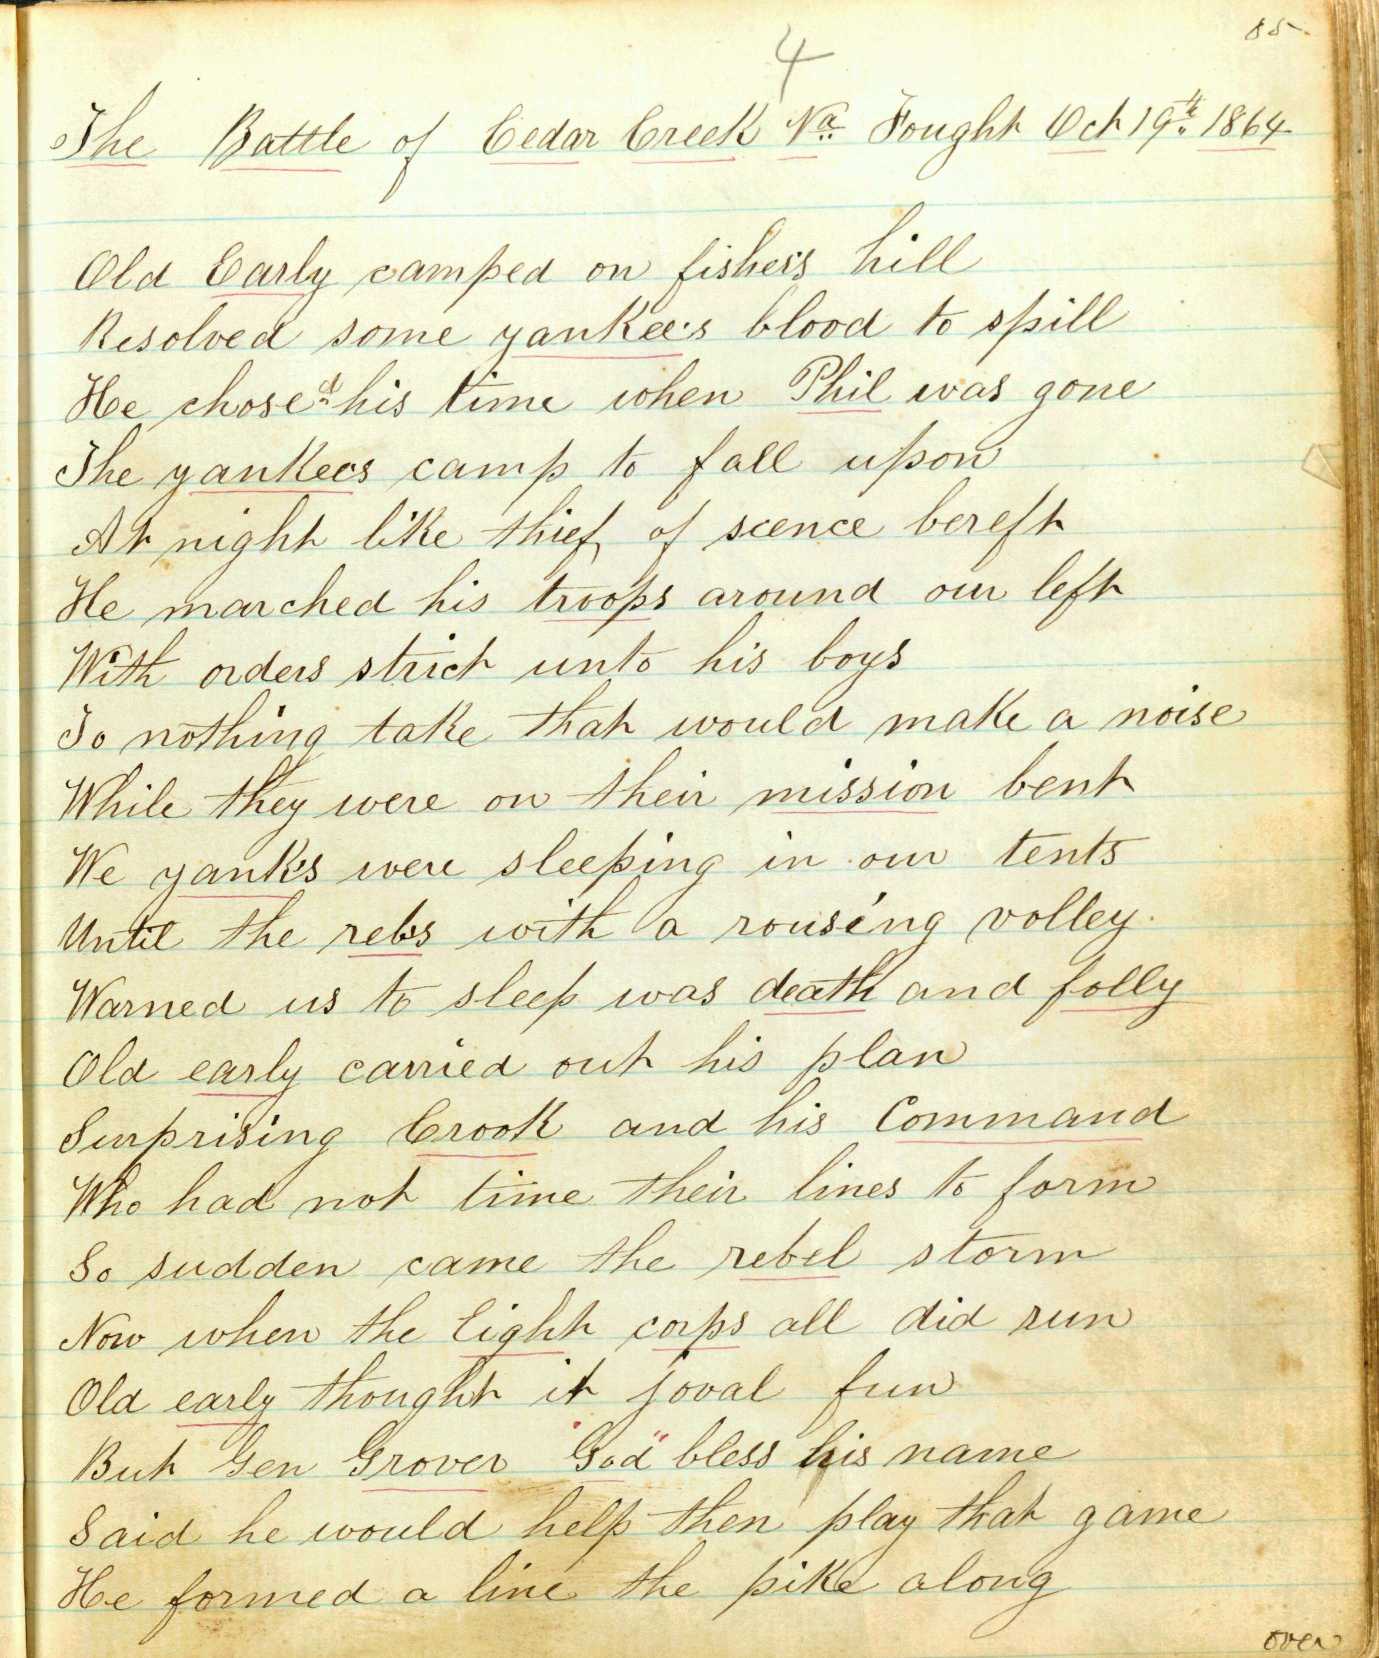 85
4
The Battle of Cedar Creek Va. Fought Oct 19th 1864
Old Early camped on fisher's hill
Resolved some yankee's blood to spill
He chosed his time when Phil was gone
The yankees camp to fall upon
At night like thief of scence bereft
He marched his troops around our left
With orders strict unto his boys
To nothing take that would make a noise
While they were on their mission bent
We yank's were sleeping in our tents
Until the reb's with a rousing volley.
Warned us to sleep was death and folly
Old early carried out his plan
Surprising Crook and his Command
Who had not time their lines to form
So sudden came the rebel storm
Now when the Eight corps all did run
Old early thought it joval fun
But Gen Grover "God" bless his name
Said he would help then play that game
He formed a line the pike along
over